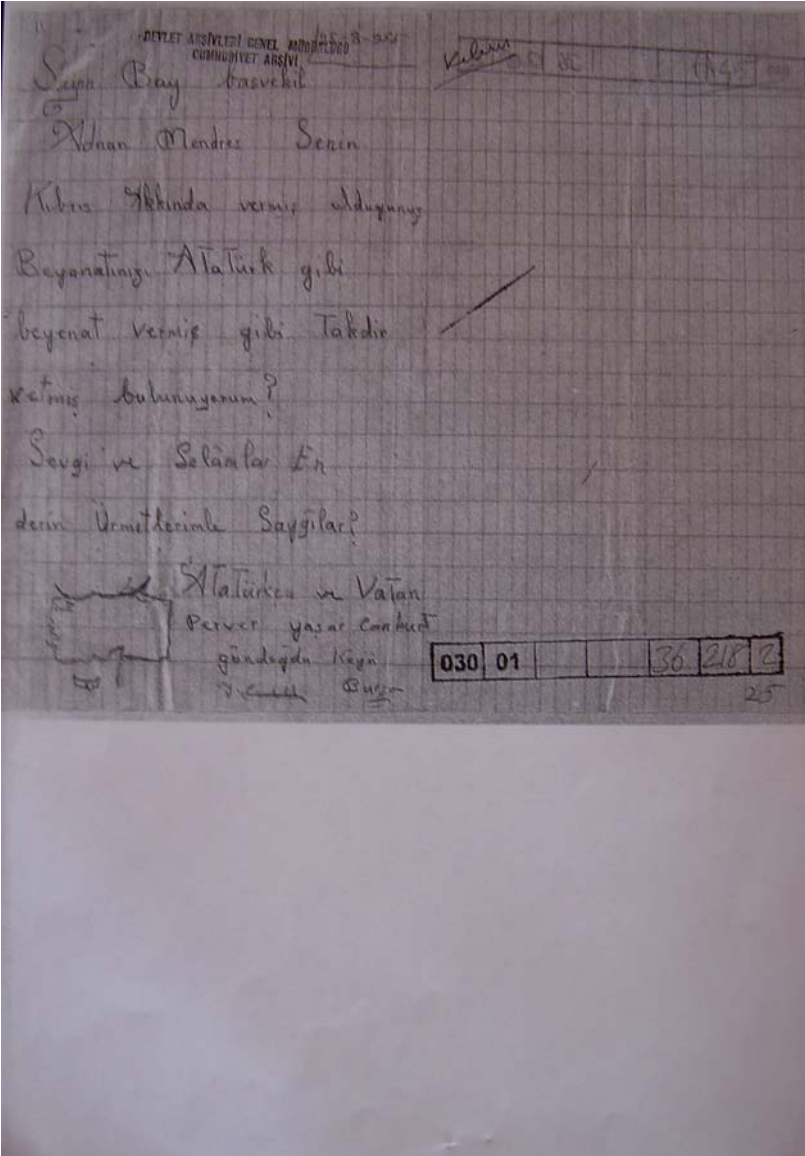 DEVLET ARŞİVLERİ GENEL MÜDÜRLÜĞÜ
CUMHURİYET ARŞİVİ
Kıbrıs
Sayın Bay basvekil
Adnan Mendres Senin
Kıbrıs Hkkinda vermiş olduğunuz
Beyanatinızı ATaTürk gibi
beyenat vermiş gibi Takdir
etmiş bulunuyorum?
Sevgi ve Selâmlar En
derin Ürmetlerimle Saygılar?
ATaTürkçü ve VaTan
Perver yaşar Canburt
gündoğdu Köyü
Bursa
030 01 36 218 2
25